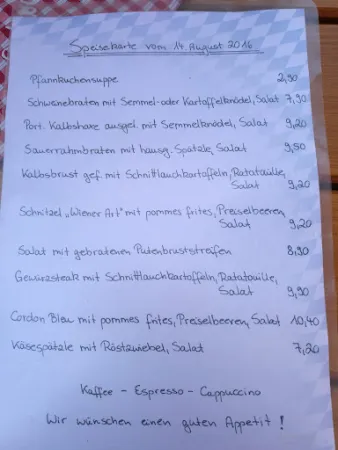 Speisekarte vom 14. August 2016
Pfannkuchensuppe 2,90
Schweinebraten mit Semmel- oder Kartoffelknödel, Salat 7,90
Port. Kalbshaxe ausgel. mit Semmelknödel, Salat 9,20
Sauerrahmbraten mit hausg. Spätzle, Salat 9,50
Kalbsbrust gef. mit Schnittlauchkartoffeln, Ratatouille,
Salat 9,20
Schnitzel „Wiener Art" mit pommes frites, Preiselbeeren,
Salat 9,20
Salat mit gebratenen Putenbruststreifen 8,90
Gewürzsteak mit Schnittlauchkartoffeln, Ratatouille,
Salat 9,90
Cordon Bleu mit pommes frites, Preiselbeeren, Salat 10,40
Käsespätzle mit Röstzwiebel, Salat 7,20
Kaffee - Espresso - Cappuccino
Wir wünschen einen guten Appetit!